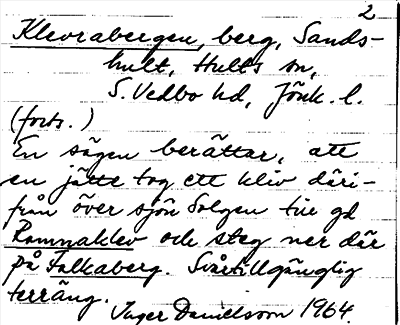 2
Klevrabergen, berg, Sands-
hult, Hults sn,
S. Vedbo hd, Jönk. l.
(forts.)
En sägen berättar, att
en jätte tog ett kliv däri-
från över sjön Solgen till gd
Ramnaklev och steg ner där
på Falkaberg. Svårtillgänglig
terräng.
Inger Danielsson 1964.